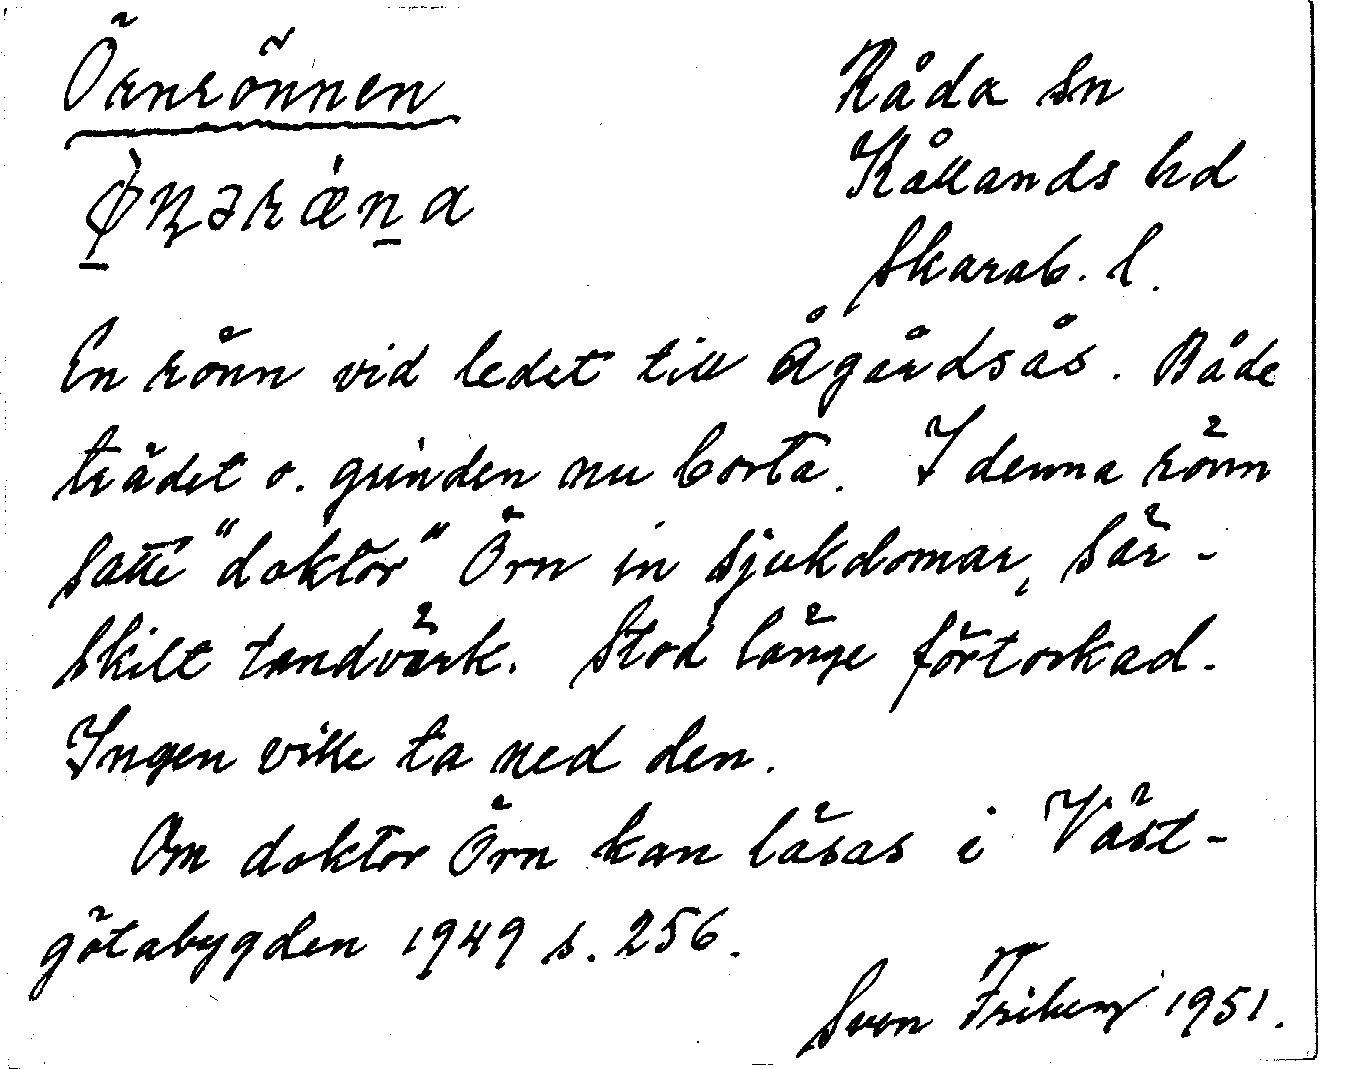 Örnrönnen
Råda sn
Kållands hd
Skarab. l.
En rönn vid ledet till Ågårdsås. Både
trädet o. grinden nu borta. I denna rönn
satte "doktor" Örn in sjukdomar, sär-
skilt tandvärk. Stod länge förtorkad.
Ingen ville ta ned den.
Om doktor Örn kan läsas i Väst-
götabygden 1949 s. 256.
Sven Friberg 1951.